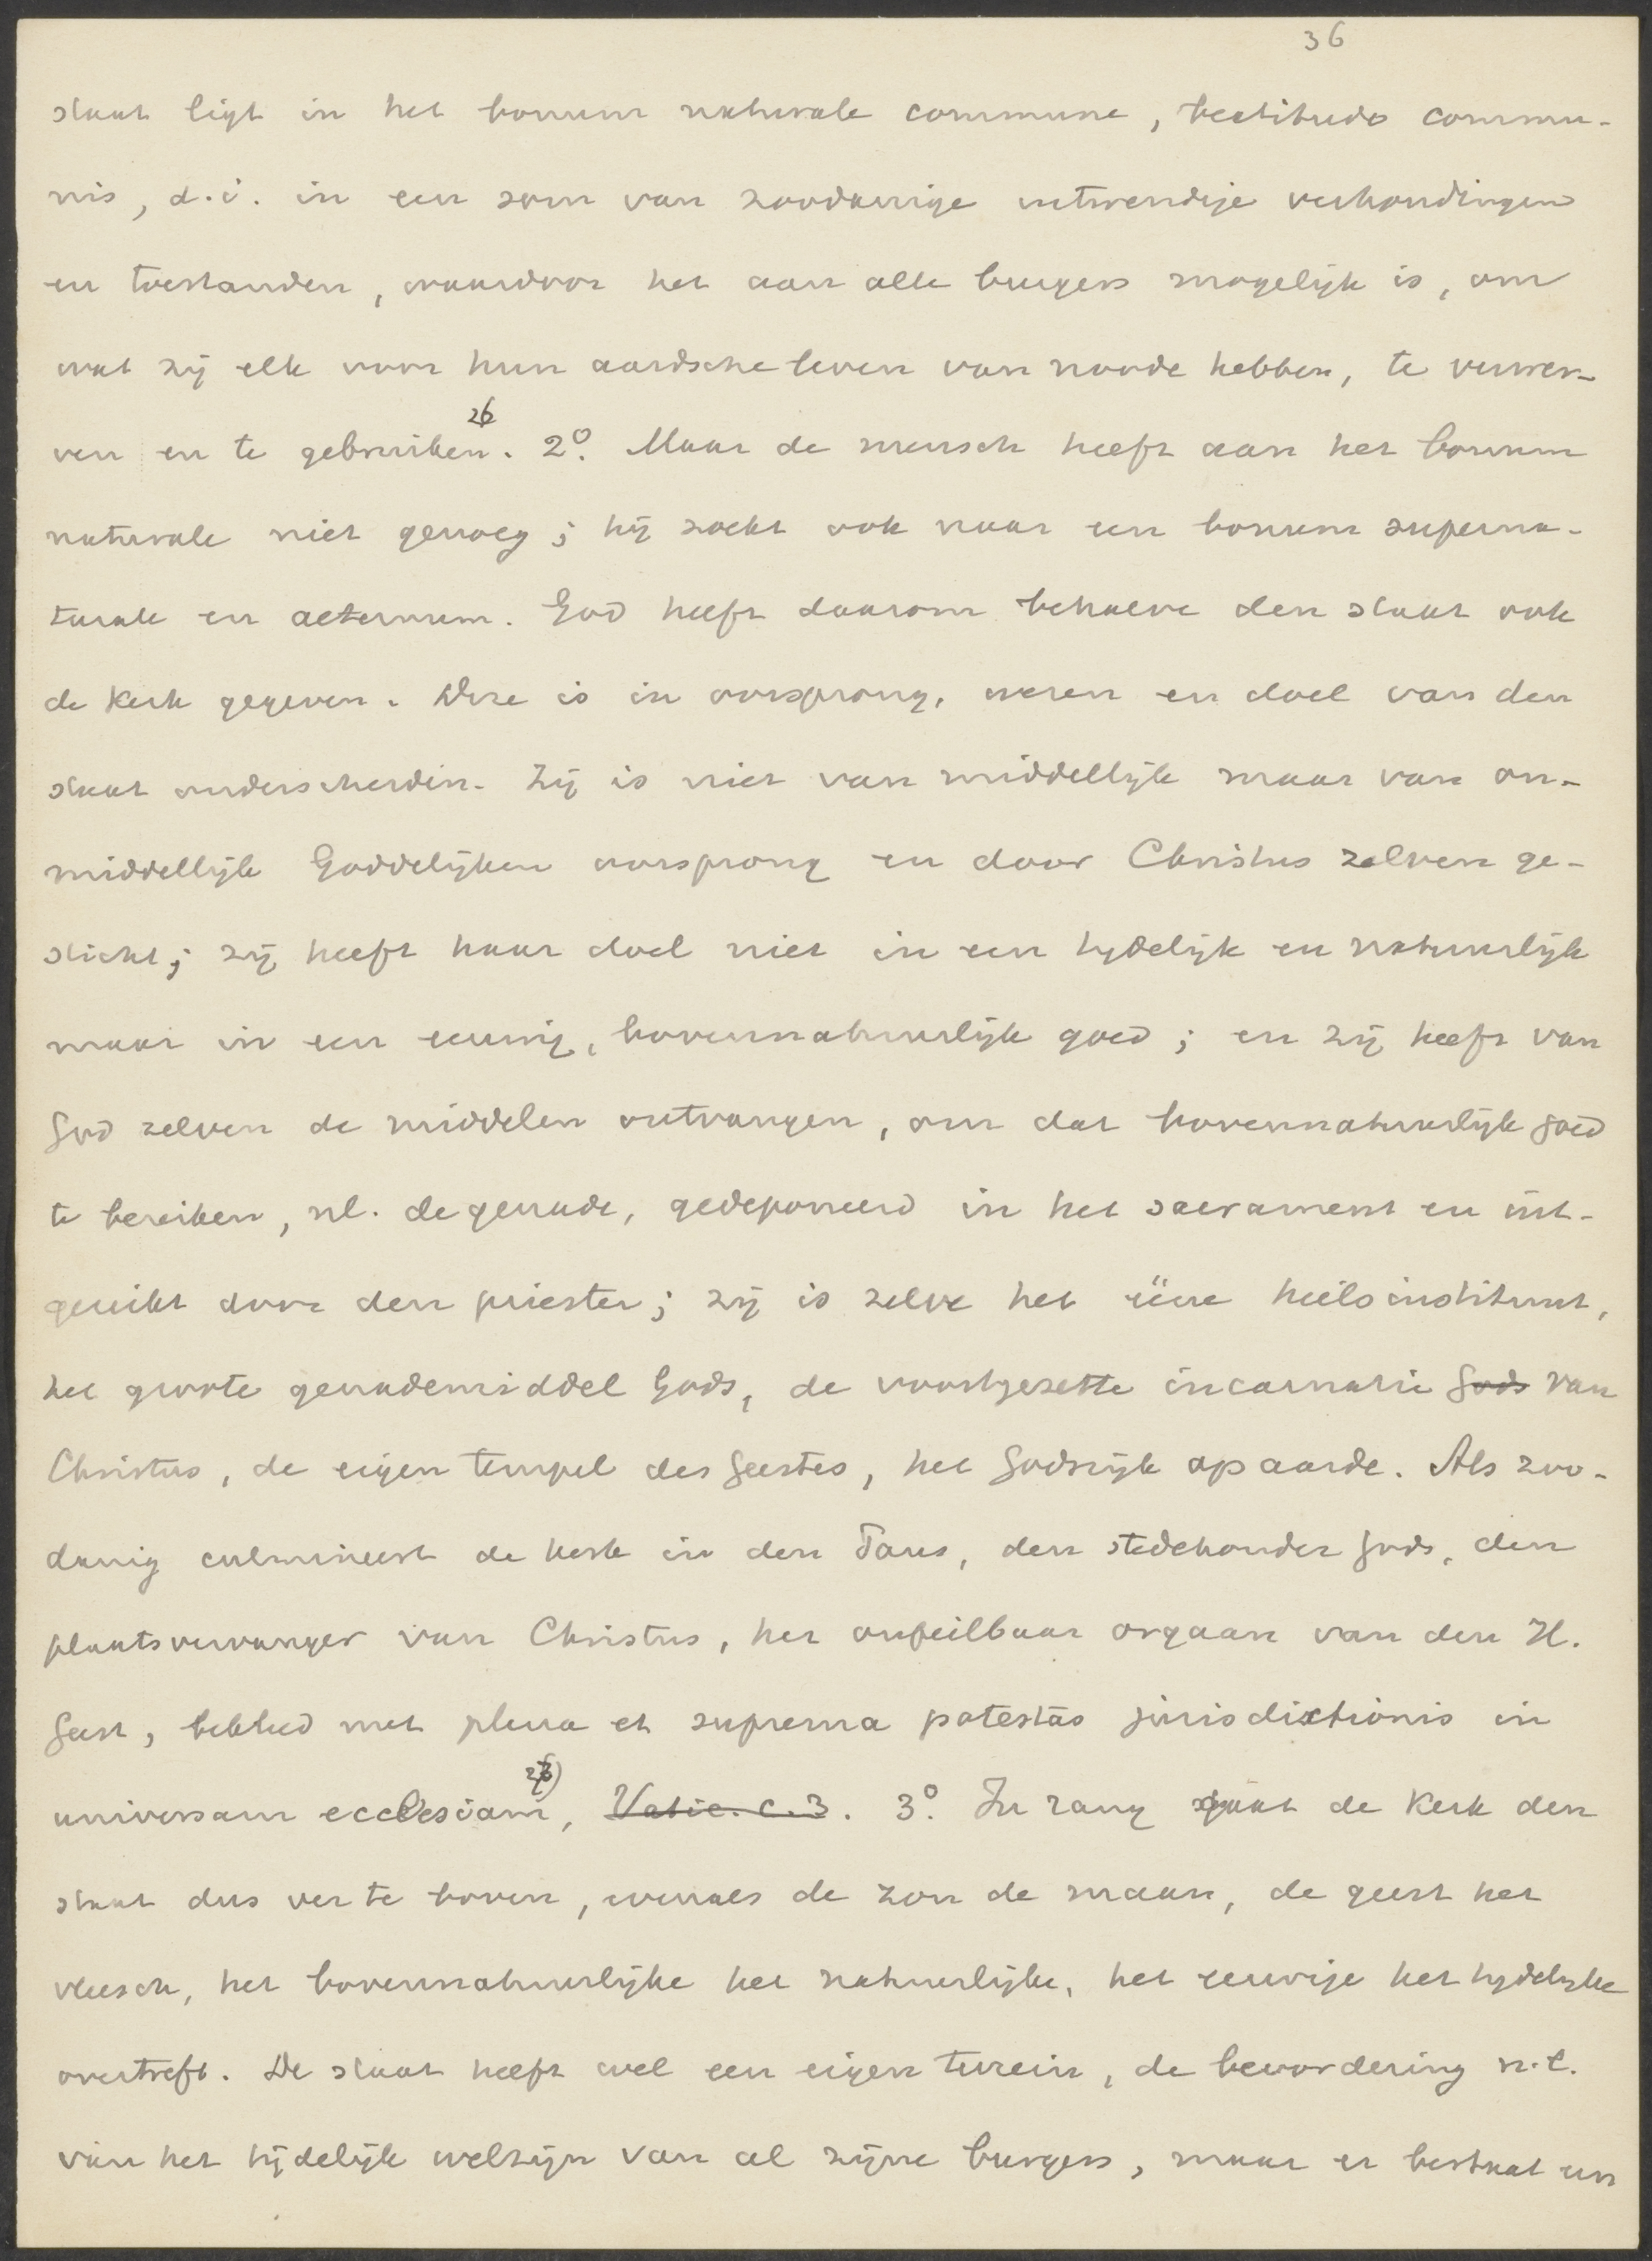 36
staat ligt in het bonum naturale commune, beatitudo commu-
nis, d.i. in een som van zoodanige uitwendige verhoudingen
en toestanden, waardoor het aan alle burgers mogelijk is, om
wat zij elk voor hun aardsche leven van noode hebben, te verwer-
ven en te gebruiken 26. 2º. Maar de mensch heeft aan het bonum
naturale niet genoeg; hij zoekt ook naar een bonum superna-
turale en aeternum. God heeft daarom behalve den staat ook
de Kerk gegeven. Deze is in oorsprong, wezen en doel van den
staat onderscheiden. Zij is niet van middellijk maar van on-
middellijk Goddelijken oorsprong en door Christus zelven ge-
sticht; zij heeft haar doel niet in een tijdelijk en natuurlijk
maar in een eeuwig, bovennatuurlijk goed; en zij heeft van
God zelven de middelen ontvangen, om dat bovennatuurlijk goed
te bereiken, nl. de genade, gedeponeerd in het sacrament en uit-
gereikt door den priester; zij is zelve het ééne heilsinstituut,
het groote genademiddel Gods, de voortgezette incarnatie Gods van
Christus, de eigen tempel des Geestes, het Godsrijk op aarde. Als zoo-
danig culmineert de kerk in den Paus, den stedehouder Gods, den
plaatsvervanger van Christus, het onfeilbaar orgaan van den H.
Geest, bekleed met plena et suprema potestas jurisdictionis in
universam ecclesiam 27), Vatic. c. 3. 3º. In rang gaat de Kerk den
staat dus ver te boven, evenals de zon de maan, de geest het
vleesch, het bovennatuurlijke het natuurlijke, het eeuwige het tijdelijke
overtreft. De staat heeft wel een eigen terrein, de bevordering n.l.
van het tijdelijk welzijn van al zijne burgers, maar er bestaat een